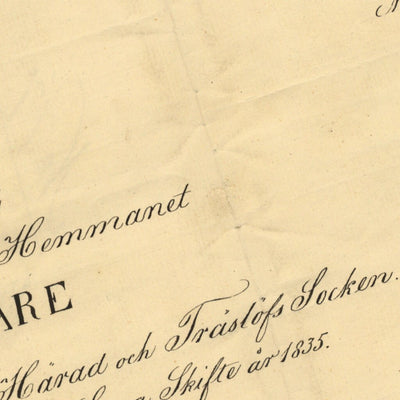 Hemmanet
ARE
Härad och Tråslöfs Socken.
Skifte år 1835.